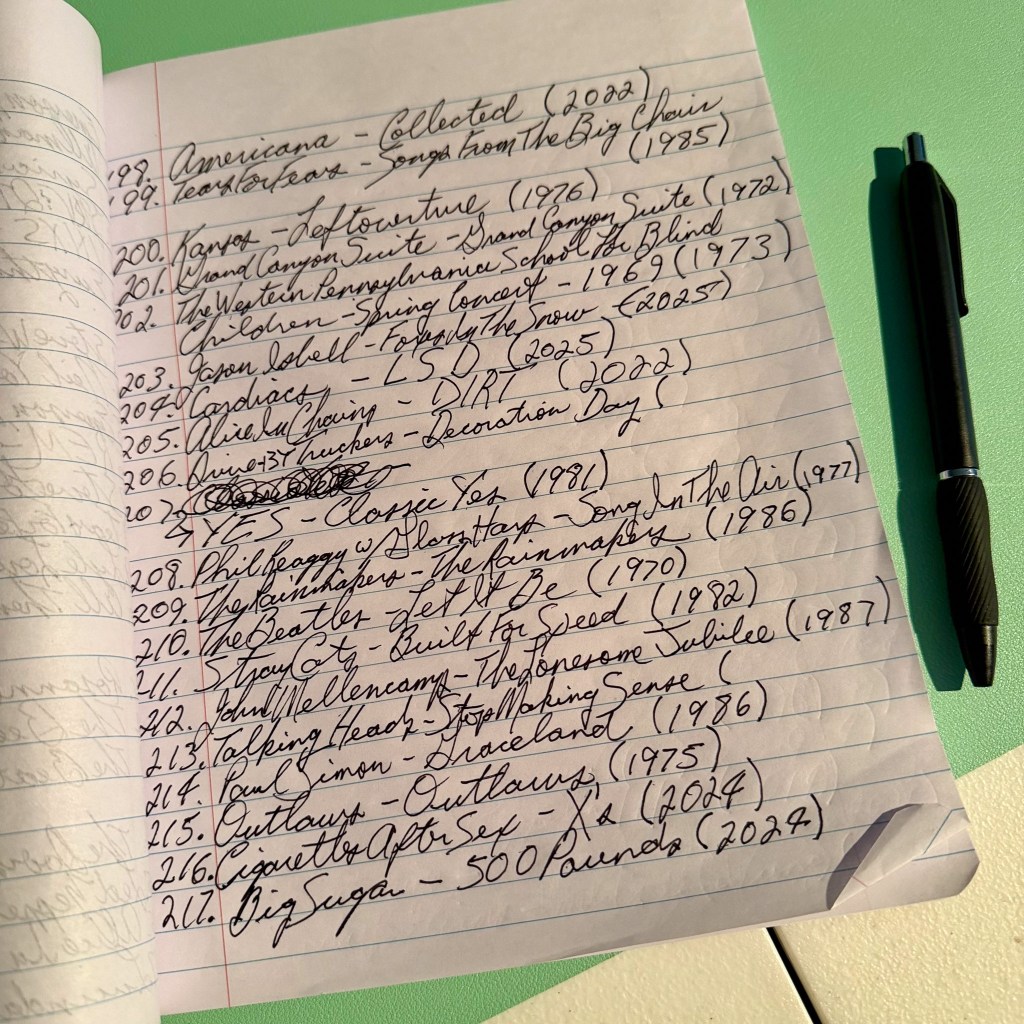 198. Americana - Collected (2022)
199. Tears For Fears - Songs From The Big Chair
(1985)
200. Kansas - Leftoverture (1976)
201. Grand Canyon Suite - Grand Canyon Suite (1972)
202. The Western Pennsylvania School For Blind
Children - Spring Concert - 1969 (1973)
203. Jason Isbell - Foxes In The Snow - (2025)
204. Cardiacs - LSD (2025)
205. Alice In Chains - DIRT (2022)
206. Drive-By Truckers - Decoration Day (
207.
↳ YES - Classic Yes (1981)
208. Phil Keaggy w/ Glass Harp - Song In The Air (1977)
209. The Rainmakers - The Rainmakers (1986)
210. The Beatles - Let It Be (1970)
211. Stray Cats - Built For Speed (1982)
212. John Mellencamp - The Lonesome Jubilee (1987)
213. Talking Heads - Stop Making Sense (
214. Paul Simon - Graceland (1986)
215. Outlaws - Outlaws (1975)
216. Cigarettes After Sex - X's (2024)
217. Big Sugar - 500 Pounds (2024)